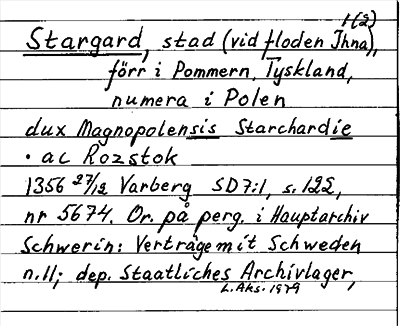 1(2)
Stargard, stad (vid floden Ihna),
förr i Pommern, Tyskland,
numera i Polen
dux Magnopolensis Starchardie
· ac Rozstok
1356 27/12 Varberg SD7:1, s. 122,
nr 5674. Or. på perg. i Hauptarchiv
Schwerin: Verträge mit Schweden
n. 11; dep. Staatliches Archivlager,
L. Aks. 1979